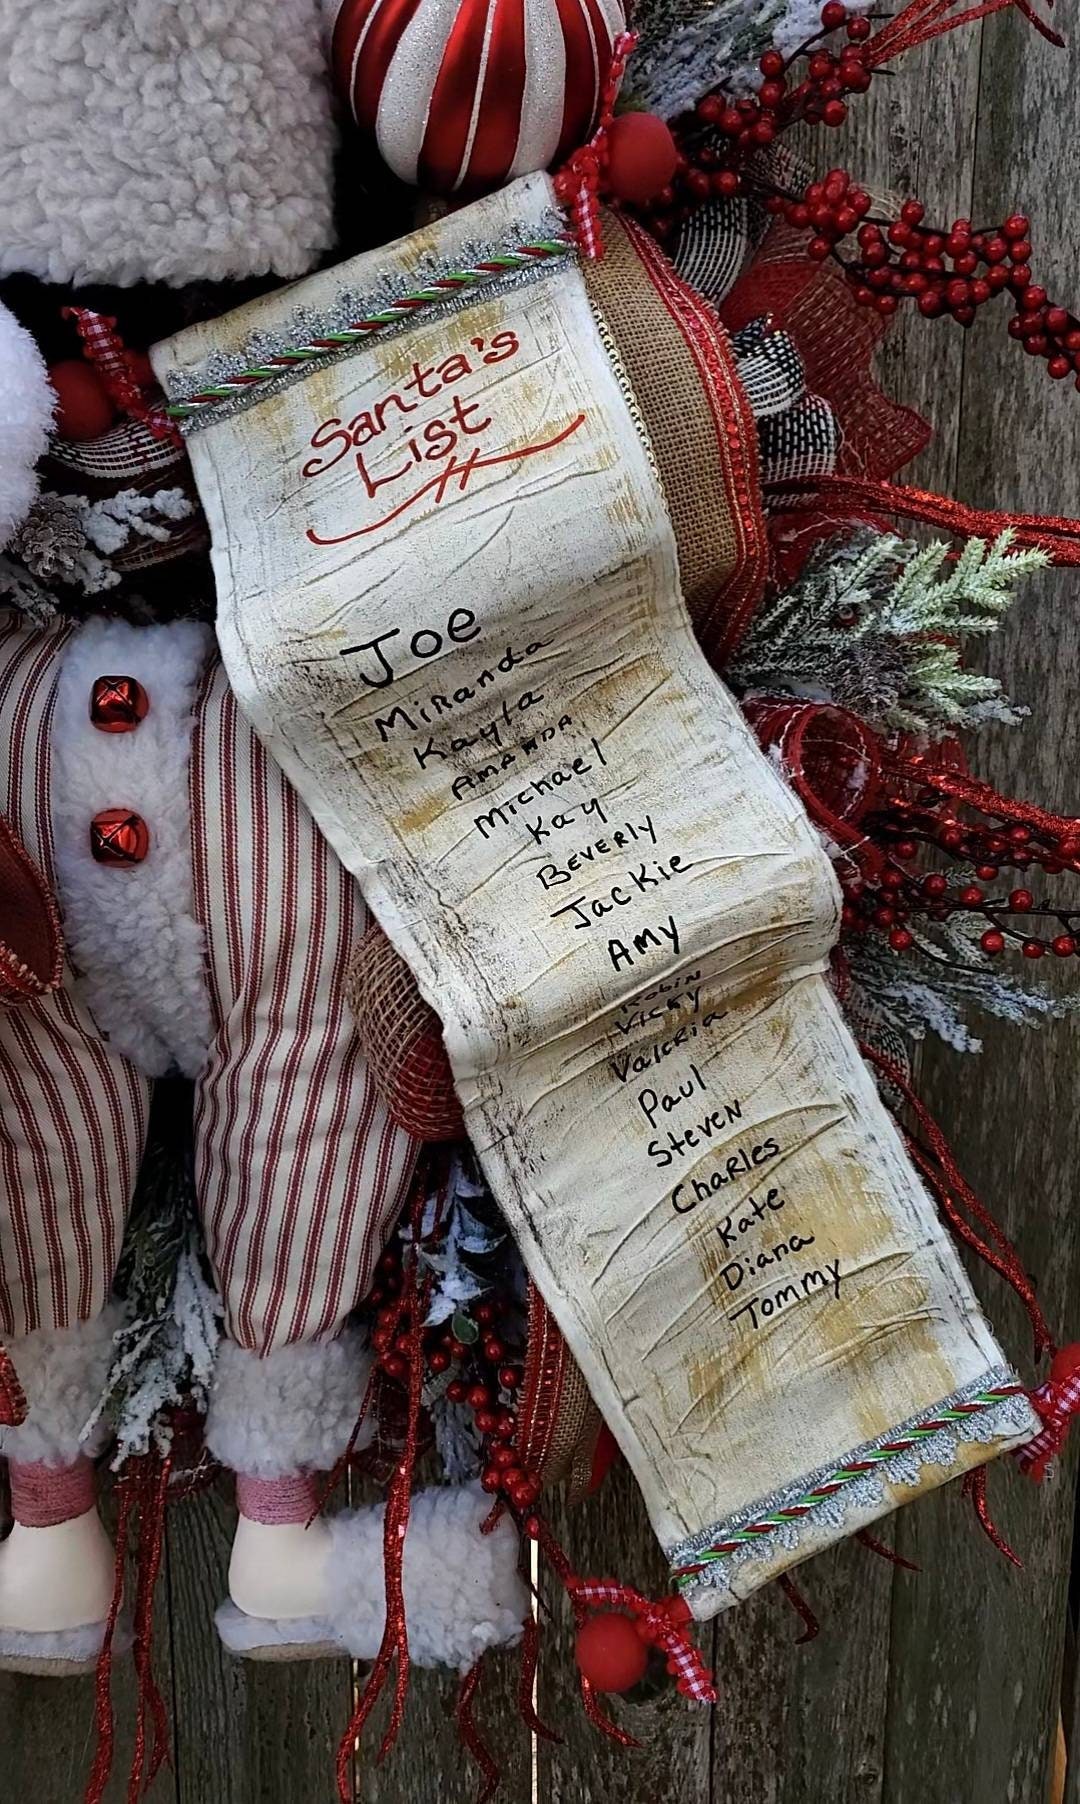 Santa's
List
Joe
Miranda
Kayla
AMANDA
Michael
Kay
BEVERLY
Jackie
AMY
Robin
Vicky
Valeria
Paul
Steven
Charles
Kate
Diana
Tommy